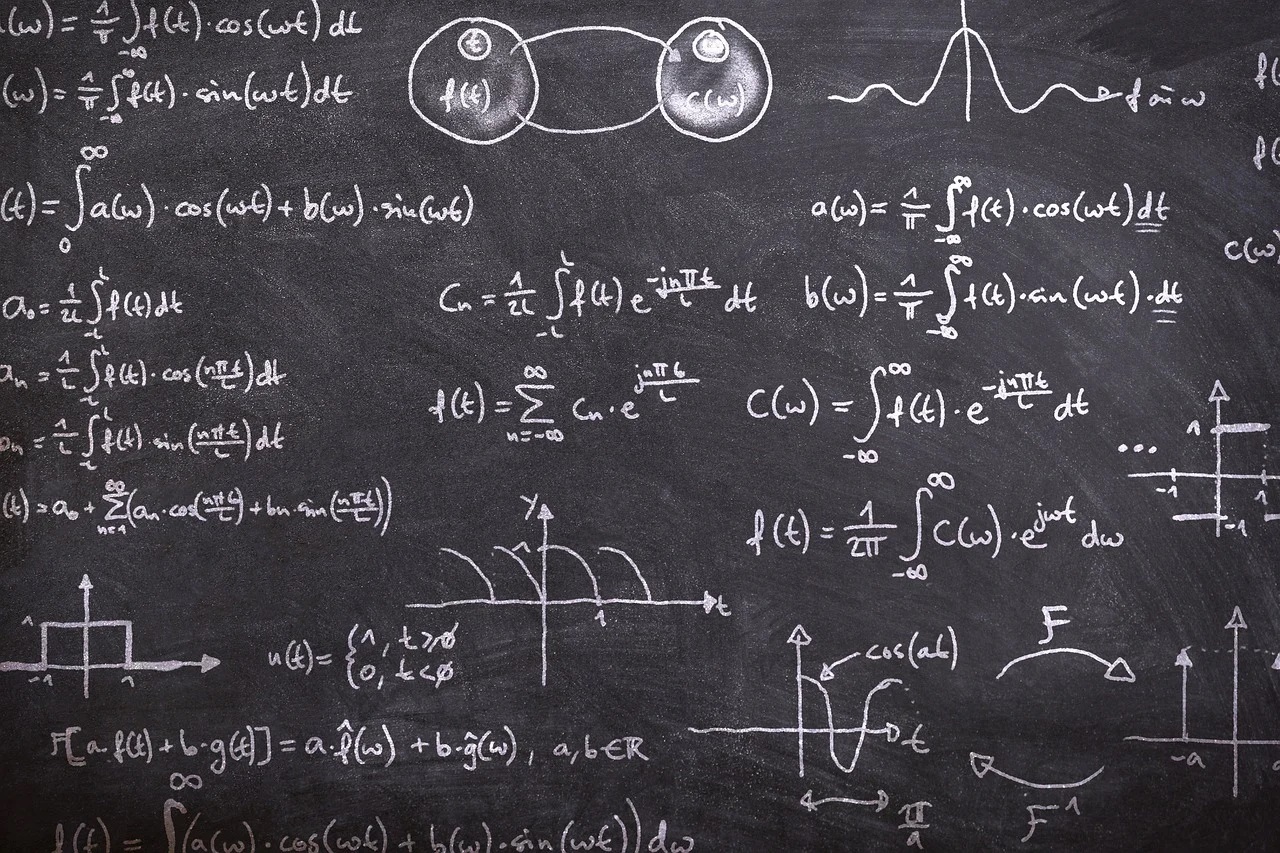 (ω) = 1/π ∫_{-∞} f(t)·cos(ωt) dt
(ω) = 1/π ∫_{-∞}^{∞} f(t)·sin(ωt) dt
t
f(t)
c(ω)
f(t)
f án ω
(t) = ∫_0^∞ a(ω)·cos(ωt) + b(ω)·sin(ωt)
a(ω) = 1/π ∫_{-∞}^{∞} f(t)·cos(ωt) dt
c(ω)
a₀ = 1/2L ∫_{-L}^{L} f(t) dt
Cn = 1/2L ∫_{-L}^{L} f(t) e^{-jnπt/L} dt
b(ω) = 1/π ∫_{-∞}^{∞} f(t)·sin(ωt)·dt
an = 1/L ∫_{-L}^{L} f(t)·cos(nπt/L) dt
f(t) = Σ_{n=-∞}^{∞} Cn·e^{jnπt/L}
C(ω) = ∫_{-∞}^{∞} f(t)·e^{-jnπt/L} dt
bn = 1/L ∫_{-L}^{L} f(t)·sin(nπt/L) dt
...
1
-1
1
-1
(t) = a₀ + Σ_{n=1}^{∞} (an·cos(nπt/L) + bn·sin(nπt/L))
f(t) = 1/2π ∫_{-∞}^{∞} C(ω)·e^{jωt} dω
y
1
t
1
1
-1
1
u(t) = {1, t≥0
0, t<0
cos(at)
t
π/a
F
F⁻¹
-a
a
F[a·f(t) + b·g(t)] = a·f̂(ω) + b·ĝ(ω), a,b∈ℝ
f(t) = ∫^∞ (a(ω)·cos(ωt) + b(ω)·sin(ωt)) dω